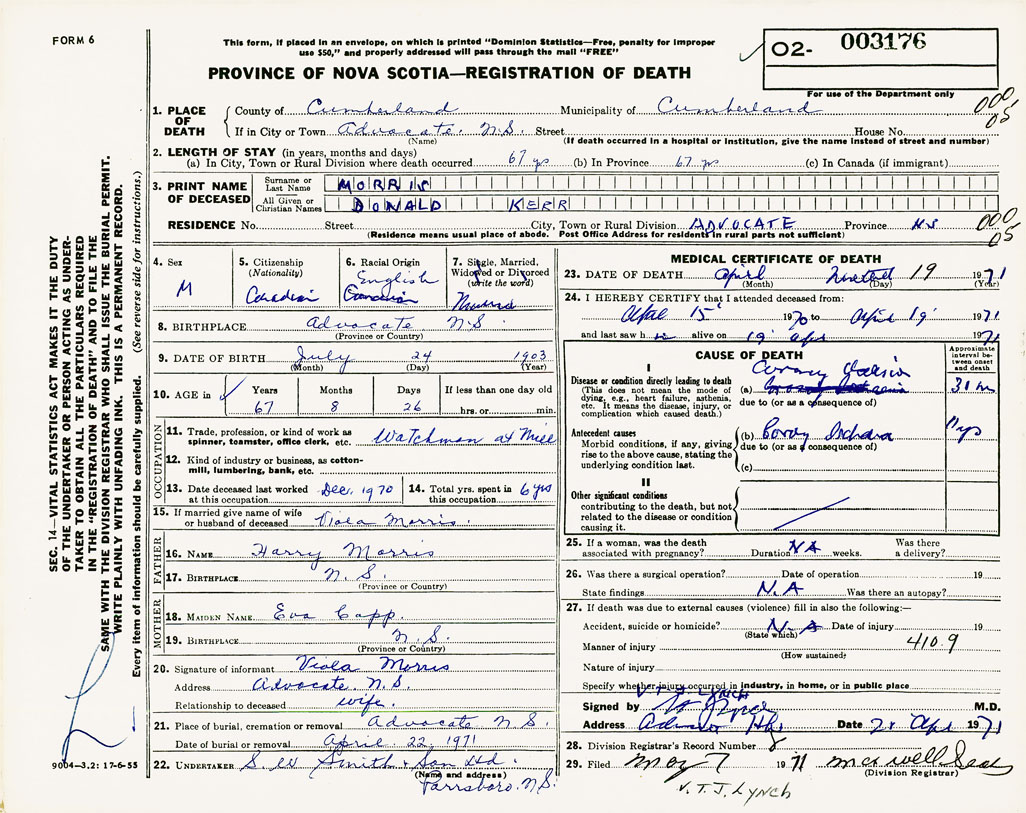 FORM 6
This form, if placed in an envelope, on which is printed "Dominion Statistics—Free, penalty for improper
use $50," and properly addressed will pass through the mail "FREE"
PROVINCE OF NOVA SCOTIA—REGISTRATION OF DEATH
O2- 003176
For use of the Department only
1. PLACE OF DEATH County of Cumberland Municipality of Cumberland 000
05
If in City or Town Advocate. N.S. Street House No.
(Name) (If death occurred in a hospital or institution, give the name instead of street and number)
2. LENGTH OF STAY (in years, months and days)
(a) In City, Town or Rural Division where death occurred 67 yrs (b) In Province 67 yrs (c) In Canada (if immigrant)
3. PRINT NAME OF DECEASED
Surname or Last Name MORRIS
All Given or Christian Names DONALD KERR
RESIDENCE No. Street City, Town or Rural Division ADVOCATE Province N.S 000
05
(Residence means usual place of abode. Post Office Address for residents in rural parts not sufficient)
4. Sex M
5. Citizenship (Nationality) Canadian
6. Racial Origin English Canadian
7. Single, Married, Widowed or Divorced (write the word) Married
8. BIRTHPLACE Advocate N.S.
(Province or Country)
9. DATE OF BIRTH July 24 1903
(Month) (Day) (Year)
10. AGE in Years 67 Months 8 Days 26 If less than one day old hrs. or min.
OCCUPATION
11. Trade, profession, or kind of work as spinner, teamster, office clerk, etc. Watchman at
12. Kind of industry or business, as cotton-mill, lumbering, bank, etc.
13. Date deceased last worked at this occupation Dec. 1970
14. Total yrs. spent in this occupation 6 yrs
15. If married give name of wife or husband of deceased Viola Morris.
FATHER
16. NAME Harry Morris
17. BIRTHPLACE N.S.
(Province or Country)
MOTHER
18. MAIDEN NAME Eva Capp.
19. BIRTHPLACE N.S.
(Province or Country)
20. Signature of informant Viola Morris
Address Advocate. N.S.
Relationship to deceased wife.
21. Place of burial, cremation or removal Advocate N.S.
Date of burial or removal April 22, 1971
22. UNDERTAKER S. W Smith & Son Ltd.
(Name and address)
Parrsboro. N.S.
MEDICAL CERTIFICATE OF DEATH
23. DATE OF DEATH April 19 1971
(Month) (Day) (Year)
24. I HEREBY CERTIFY that I attended deceased from:
April 15 1970 to April 19 1971
and last saw h alive on 19 Apr 1971
CAUSE OF DEATH
Approximate interval between onset and death
I
Disease or condition directly leading to death
(This does not mean the mode of dying, e.g., heart failure, asthenia, etc. It means the disease, injury, or complication which caused death.)
(a)
due to (or as a consequence of)
Antecedent causes
Morbid conditions, if any, giving rise to the above cause, stating the underlying condition last.
(b)
due to (or as a consequence of)
(c)
II
Other significant conditions
contributing to the death, but not related to the disease or condition causing it.
25. If a woman, was the death associated with pregnancy? Duration NA weeks. Was there a delivery?
26. Was there a surgical operation? Date of operation 19
State findings N.A Was there an autopsy?
27. If death was due to external causes (violence) fill in also the following:—
Accident, suicide or homicide? N.A Date of injury 19
(State which)
Manner of injury 410.9
(How sustained)
Nature of injury
Specify whether injury occurred in industry, in home, or in public place
V. T. J. LYNCH
Signed by M.D.
Address Date Apr 1971
28. Division Registrar's Record Number 8
29. Filed May 7 1971
(Division Registrar)
V.T.J. LYNCH
SEC. 14—VITAL STATISTICS ACT MAKES IT THE DUTY
OF THE UNDERTAKER OR PERSON ACTING AS UNDER-
TAKER TO OBTAIN ALL THE PARTICULARS REQUIRED
IN THE "REGISTRATION OF DEATH" AND TO FILE THE
SAME WITH THE DIVISION REGISTRAR WHO SHALL ISSUE THE BURIAL PERMIT.
WRITE PLAINLY WITH UNFADING INK. THIS IS A PERMANENT RECORD.
Every item of information should be carefully supplied. (See reverse side for instructions.)
9004-3.2: 17-6-55